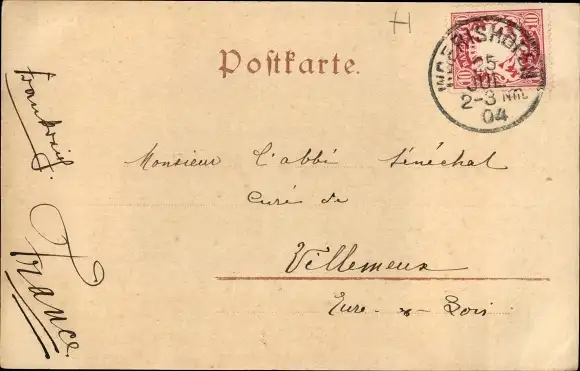 H
Postkarte.
10 10
WOERISHOFEN
25
JUL
2-3 NM.
04
Frankreich.
Monsieur l'abbé Sénéchal
Curé de
Villemeux
Eure-&-Loir
France